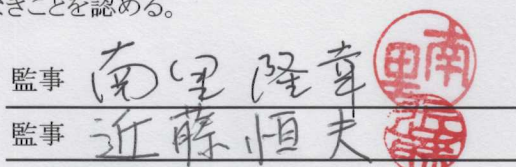 なきことを認める。
監事 南里隆幸 南里
監事 近藤恒夫